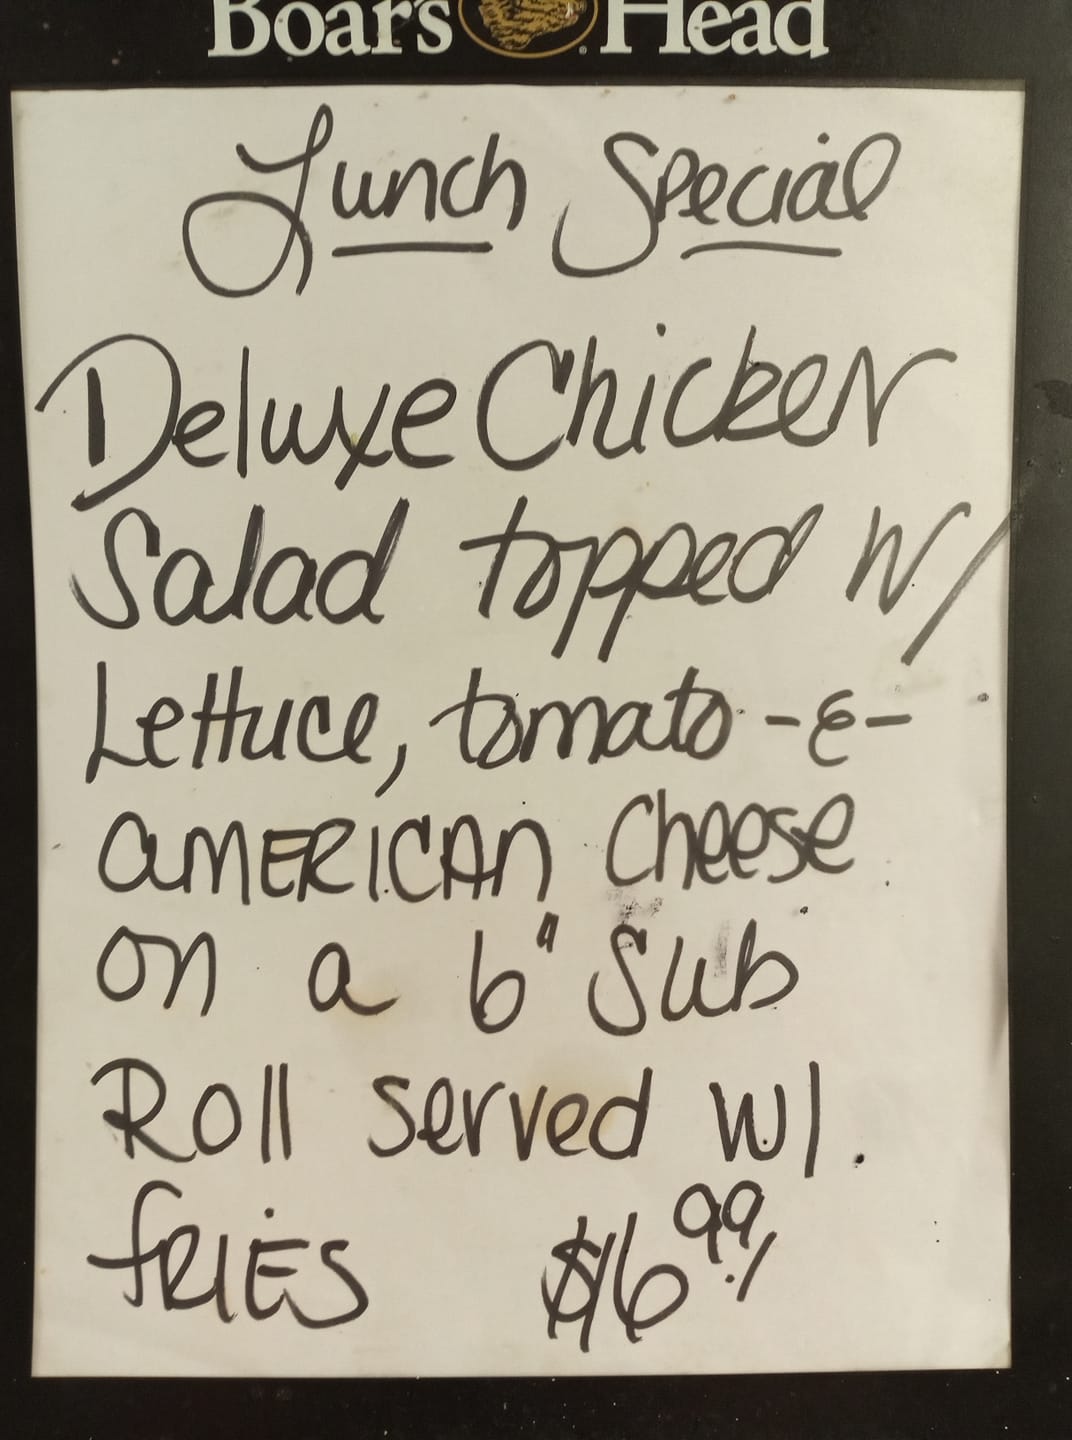 Boar's Head
Lunch Special
Deluxe Chicken
Salad topped w/
Lettuce, tomato -&-
AMERICAN Cheese
on a 6" Sub
Roll served w/
fRIES $6.99